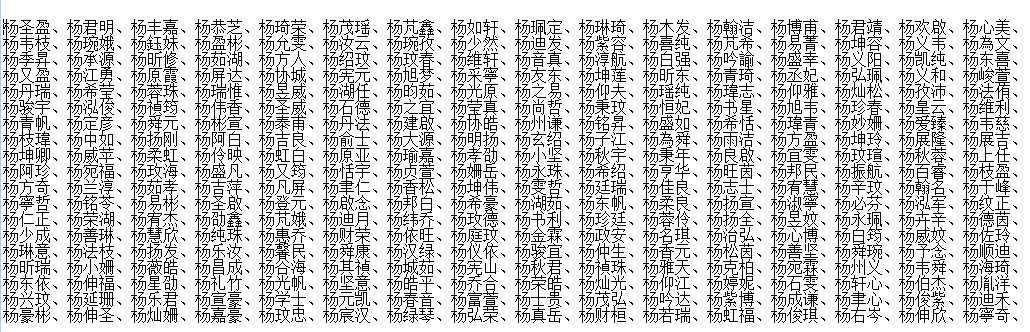 杨圣盈、杨君明、杨丰嘉、杨恭芝、杨琦荣、杨茂瑶、杨芃鑫、杨如轩、杨珮定、杨琳琦、杨木发、杨翰洁、杨博甫、杨君靖、杨欢啟、杨心美
杨韦枝、杨琬娥、杨鈺姝、杨盈彬、杨允雯、杨汝云、杨玫孜、杨少然、杨迪发、杨紫容、杨喜纯、杨芃希、杨易菁、杨坤容、杨义韦、杨為文
杨季昇、杨承源、杨昕修、杨茹湖、杨方人、杨绍玟、杨玟春、杨维轩、杨音真、杨淳航、杨白强、杨吟諭、杨菁菁、杨义阳、杨凯纯、杨东喜
杨又盈、杨江勇、杨原霞、杨屏达、杨协城、杨宪元、杨旭梦、杨采寧、杨友东、杨坤莲、杨昕东、杨青琦、杨盛妃、杨弘珮、杨义和、杨峻萱
杨丹瑞、杨希荣、杨蓉珠、杨瑞惟、杨昱威、杨湖任、杨昀茹、杨光原、杨之易、杨仰夫、杨瑶纯、杨瑋志、杨仰雅、杨灿松、杨孜沛、杨法侑
杨骏宇、杨泓俊、杨禎鈞、杨伟香、杨圣威、杨石德、杨之宜、杨莹真、杨尚哲、杨秉玟、杨恒妃、杨书星、杨旭韦、杨珍春、杨皇云、杨维利
杨青帆、杨定彦、杨舜元、杨彬宣、杨泰甫、杨丹法、杨建啟、杨协皓、杨州谦、杨铭昇、杨盛如、杨希恬、杨瑋青、杨妙姗、杨爱臻、杨韦慈
杨枝瑋、杨中如、杨扬刚、杨阿白、杨吉良、杨俞士、杨大源、杨明扬、杨玄绍、杨子江、杨為舜、杨雨洁、杨方盈、杨坤玲、杨展隆、杨展吉
杨坤卿、杨威苹、杨柔虹、杨伶映、杨虹白、杨原亚、杨瑜嘉、杨孝劭、杨小坚、杨秋宇、杨秉年、杨良啟、杨宜雯、杨玟瑄、杨秋蓉、杨上任
杨阿珍、杨宛福、杨玫海、杨盛凡、杨又筠、杨恬仁、杨贞萱、杨姗岳、杨永珠、杨希芸、杨亨良、杨旺茵、杨邦民、杨振航、杨白睿、杨枝岳
杨方奇、杨兰淳、杨茹孝、杨吉萍、杨凡屏、杨聿仁、杨香松、杨坤伟、杨雯哲、杨廷瑞、杨佳良、杨志士、杨宥慧、杨辛玟、杨翰名、杨于峰
杨寧哲、杨铭岑、杨易彬、杨圣啟、杨登雯、杨念念、杨邦白、杨希豪、杨雯茹、杨东帆、杨柔蓉、杨扬宣、杨淑寧、杨必芬、杨泓辛、杨纹正
杨仁正、杨荣湖、杨宥杰、杨劭鑫、杨芃娥、杨迪月、杨纬乔、杨玫德、杨书利、杨珍廷、杨蓉伶、杨振全、杨昱妏、杨永珮、杨军辛、杨德茵
杨少成、杨善法、杨慧欣、杨纯珠、杨惠乔、杨财荣、杨依旺、杨庭玟、杨金霖、杨政安、杨名琪、杨治弘、杨之博、杨白筠、杨威妏、杨伦岳
杨琳意、杨士琳、杨扬发、杨乐汝、杨馨民、杨舜康、杨汉绿、杨仪依、杨骏宜、杨仲生、杨香元、杨松茵、杨善坚、杨舜州、杨子念、杨顺迪
杨昕瑞、杨小姗、杨薇皓、杨昌成、杨谷海、杨其禎、杨城茹、杨宪山、杨秋君、杨禎珠、杨雅天、杨克柏、杨宛霖、杨琬义、杨韦舜、杨海琦
杨东依、杨伸福、杨星劭、杨礼竹、杨光学、杨坚元、杨皓平、杨乔合、杨荣士、杨灿光、杨仰江、杨婷妮、杨石雯、杨轩心、杨伯杰、杨胤洋
杨兴玟、杨延珊、杨乐君、杨宣豪、杨学士、杨元凯、杨春音、杨富萱、杨士贵、杨茂弘、杨吟达、杨紫博、杨成谦、杨聿心、杨俊紫、杨迪禾
杨豪彬、杨伸圣、杨灿姗、杨嘉豪、杨玟忠、杨宸汉、杨绿琴、杨弘荣、杨真岳、杨财桓、杨若瑞、杨虹福、杨俊琪、杨右岑、杨伸欣、杨寧奇